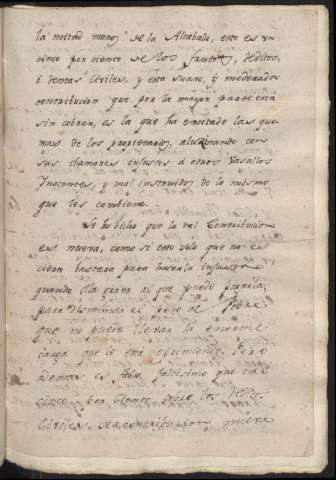 la mitad menos de la Alcabala, esto es un
cinco por ciento de los frutos, Reditos,
è demas Civiles, y esta suave, y moderada
contribucion que por la mayor parte esta
sin cobrar, es la que ha excitado las que
xas de los propietarios, alucinando con
sus clamores injustos á otros Vasallos
Inocentes, y mal instruidos de lo mismo
que les combiene.
Se ha dicho que la tal Contribucion
es nueva, como si esto solo que no es
cierto bastara para hacerla injusta
quando ella grava al que puede pagarla,
para disminuir el peso al Pobre
que no puede llevar la enorme
carga que le era oprimiendo. Pero
ademas es falso, falsisimo que el
cinco por ciento sobre los
Civiles sea contribucion nueva